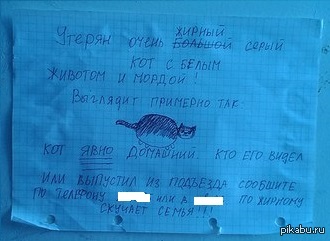 жирный
Утерян очень большой серый
кот с белым
животом и мордой!
Выглядит примерно так:
кот явно домашний. кто его видел
или выпустил из подъезда сообщите
по телефону или в по жирному
скучает семья!!!
pikabu.ru